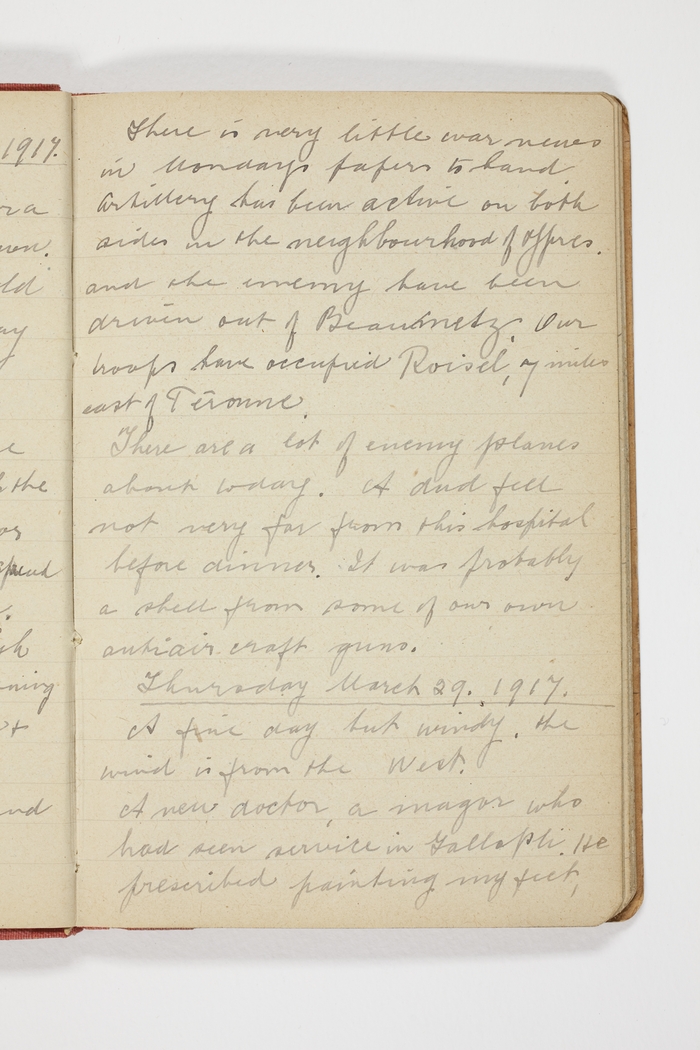 1917.
ra
ld
ay
the
or
spend
ning
nd
There is very little war news
in Mondays papers to hand
Artillery has been active on both
sides in the neighbourhood of Ypres.
and the enemy have been
driven out of Beaumetz. Our
troops have occupied Roisel, 7 miles
east of Peronne.
There are a lot of enemy planes
about today. A dud fell
not very far from this hospital
before dinner. It was probably
a shell from some of our own
antiair craft guns.
Thursday March 29. 1917.
A fine day but windy, the
wind is from the West.
A new doctor, a magor who
had seen service in Gallopli. He
prescribed painting my feet,